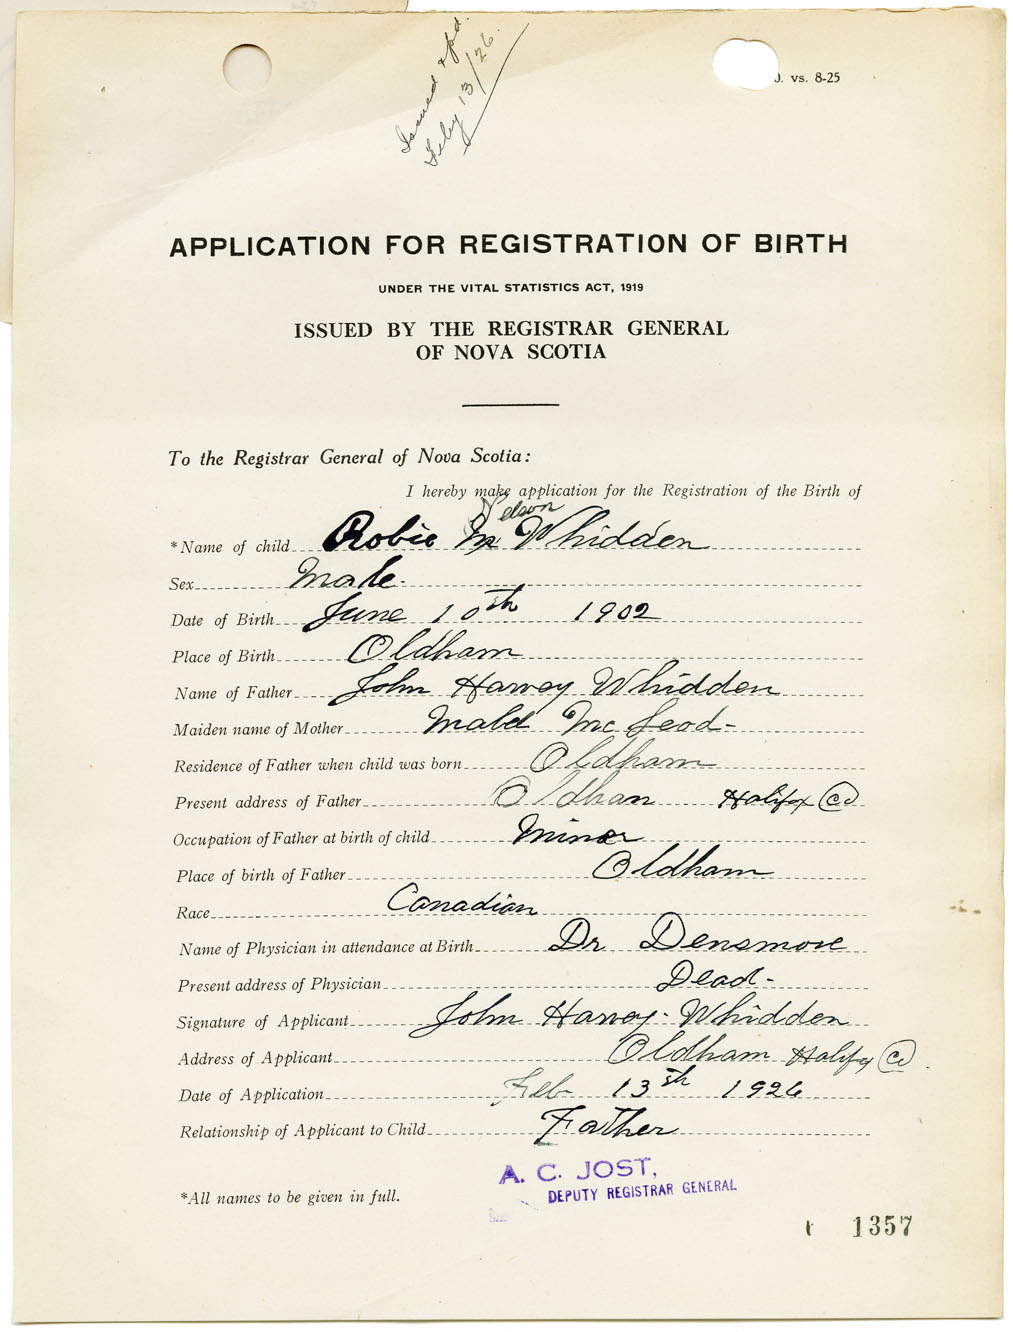 Issued & pd.
Feby 13/26.
0. vs. 8-25
APPLICATION FOR REGISTRATION OF BIRTH
UNDER THE VITAL STATISTICS ACT, 1919
ISSUED BY THE REGISTRAR GENERAL
OF NOVA SCOTIA
To the Registrar General of Nova Scotia:
I hereby make application for the Registration of the Birth of
Nelson
*Name of child Robie Whidden
Sex Male.
Date of Birth June 10th 1902
Place of Birth Oldham
Name of Father John Harvey Whidden
Maiden name of Mother Mabel McLeod-
Residence of Father when child was born Oldham
Present address of Father Oldham Halifax Co
Occupation of Father at birth of child Minor
Place of birth of Father Oldham
Race Canadian
Name of Physician in attendance at Birth Dr Densmore
Present address of Physician Dead-
Signature of Applicant John Harvey- Whidden
Address of Applicant Oldham Halifax Co
Date of Application Feb 13th 1926
Relationship of Applicant to Child Father
A. C. JOST,
DEPUTY REGISTRAR GENERAL
*All names to be given in full.
1357